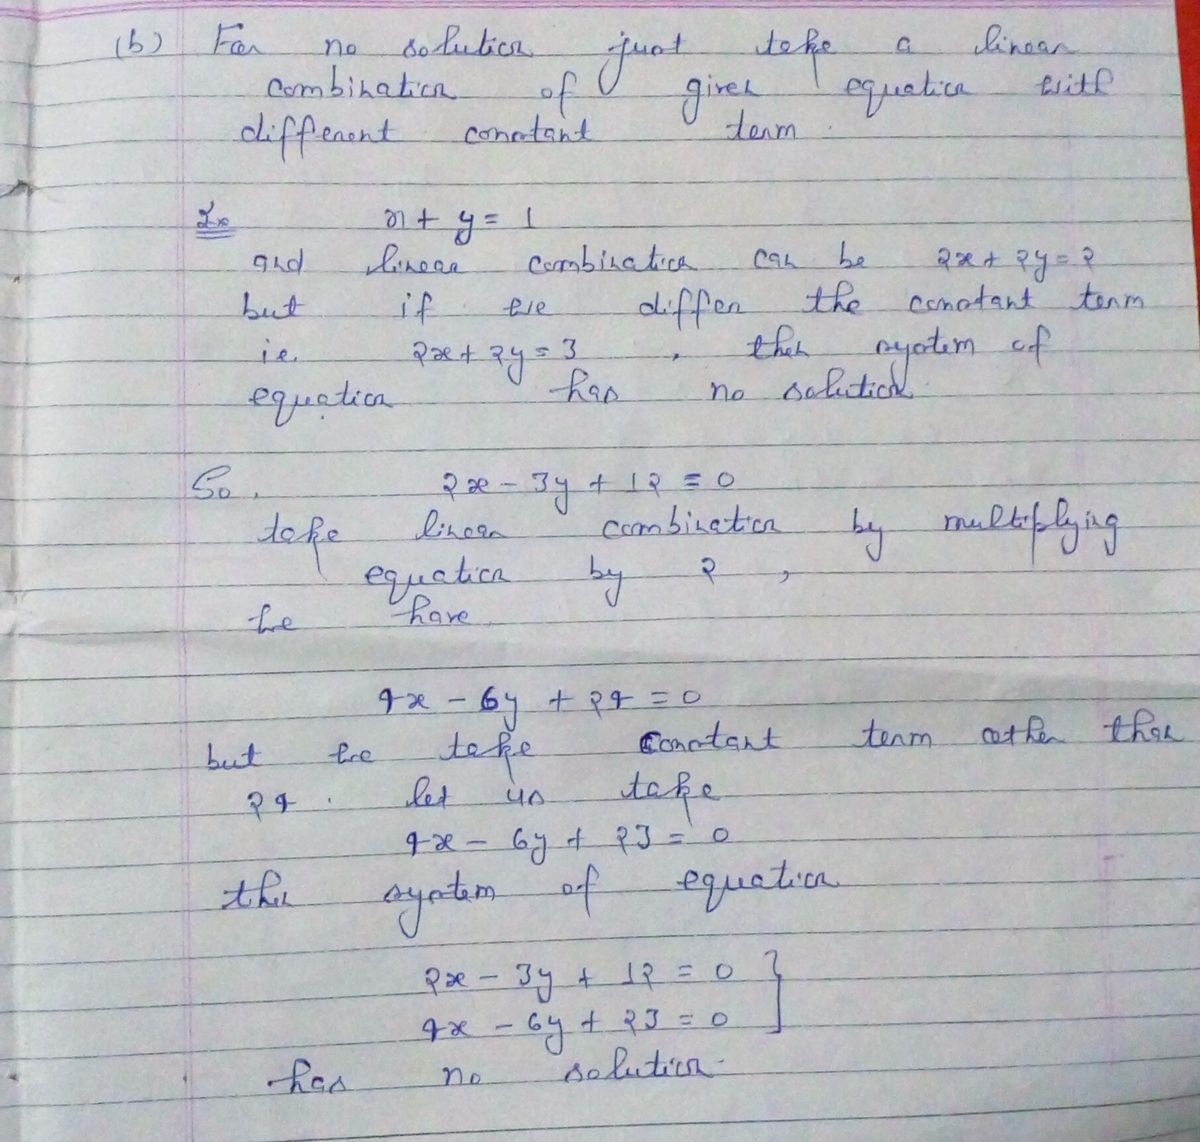 (b) For no solution just take a linear
combination of given equation with
different constant term.
Ex x + y = 1
and linear combination can be 2x + 2y = 2
but if we differ the constant term
i.e. 2x + 2y = 3 , then system of
equation has no solution.
So, 2x - 3y + 12 = 0
take linear combination by multiplying
equation by 2 ,
we have
4x - 6y + 24 = 0
but we take constant term other than
24. let us take
4x - 6y + 23 = 0
then system of equation
2x - 3y + 12 = 0 }
4x - 6y + 23 = 0
has no solution.